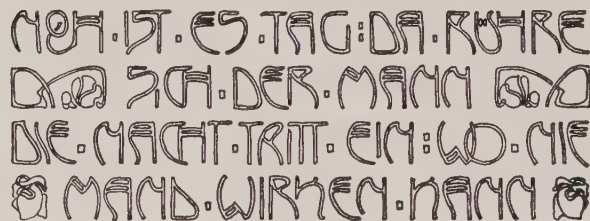 NOCH·IST·ES·TAG:DA·RÜHRE
SICH·DER·MANN
DIE·NACHT·TRITT·EIN:WO·NIE
MAND·WIRKEN·KANN